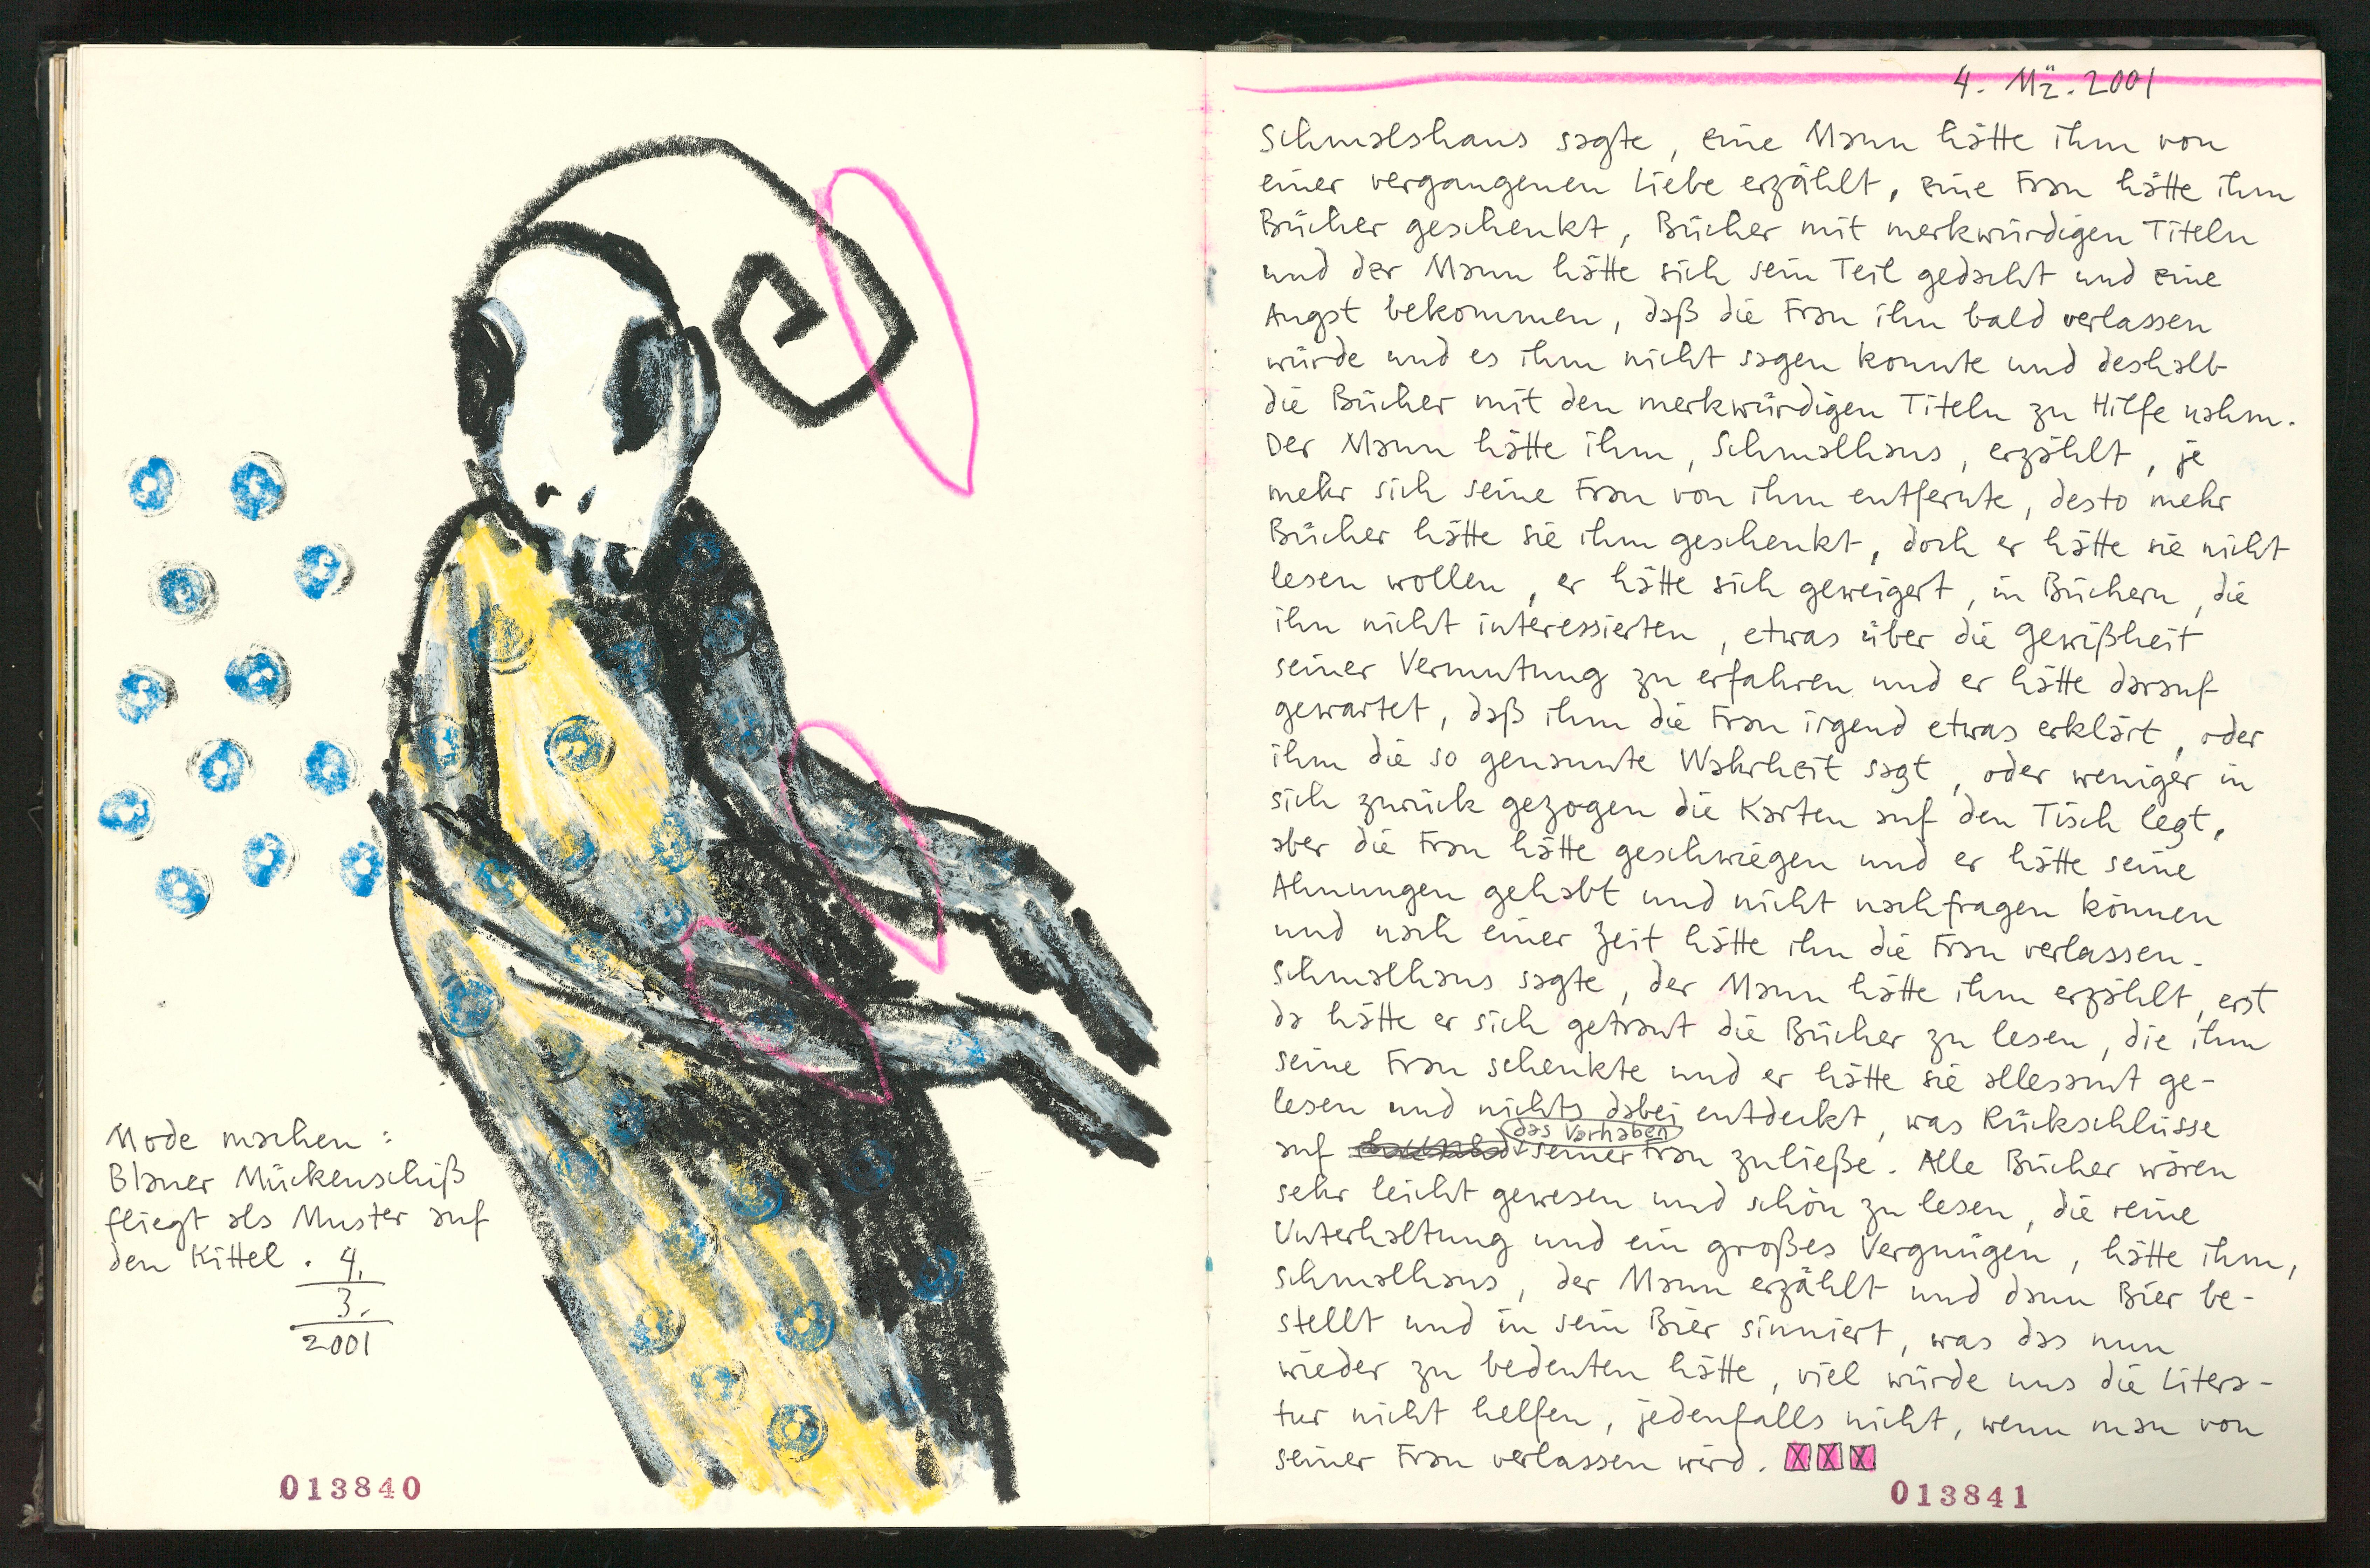 Mode machen :
Blauer Mückenschiß
fliegt als Muster auf
den Kittel . 4.
3.
2001
013840
4. Mz. 2001
Schmalshaus sagte, eine Mann hätte ihm von
einer vergangenen Liebe erzählt, eine Frau hätte ihm
Bücher geschenkt, Bücher mit merkwürdigen Titeln
und der Mann hätte sich sein Teil gedacht und eine
Angst bekommen, daß die Frau ihn bald verlassen
würde und es ihm nicht sagen konnte und deshalb
die Bücher mit den merkwürdigen Titeln zu Hilfe nahm.
Der Mann hätte ihm, Schmalhaus, erzählt, je
mehr sich seine Frau von ihm entfernte, desto mehr
Bücher hätte sie ihm geschenkt, doch er hätte sie nicht
lesen wollen, er hätte sich geweigert, in Büchern, die
ihn nicht interessierten, etwas über die Gewißheit
seiner Vermutung zu erfahren und er hätte darauf
gewartet, daß ihm die Frau irgend etwas erklärt, oder
ihm die so genannte Wahrheit sagt, oder weniger in
sich zurück gezogen die Karten auf den Tisch legt,
aber die Frau hätte geschwiegen und er hätte seine
Ahnungen gehabt und nicht nachfragen können
und nach einer Zeit hätte ihn die Frau verlassen.
Schmalhaus sagte, der Mann hätte ihm erzählt, erst
da hätte er sich getraut die Bücher zu lesen, die ihm
seine Frau schenkte und er hätte sie allesamt ge-
lesen und nichts dabei entdeckt, was Rückschlüsse
auf das Vorhaben seiner Frau zuließe. Alle Bücher wären
sehr leicht gewesen und schön zu lesen, die reine
Unterhaltung und ein großes Vergnügen, hätte ihm,
Schmalhaus, der Mann erzählt und dann Bier be-
stellt und in sein Bier sinniert, was das nun
wieder zu bedeuten hätte, viel würde uns die Litera-
tur nicht helfen, jedenfalls nicht, wenn man von
seiner Frau verlassen wird. XXX
013841